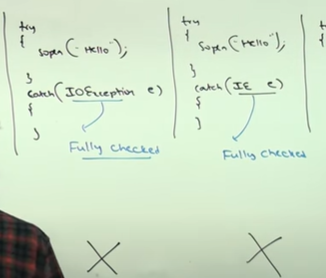 try
{
sopen("Hello");
}
catch(IOException e)
{
}
Fully checked
try
{
sopen("Hello");
}
catch(IE e)
{
}
Fully checked